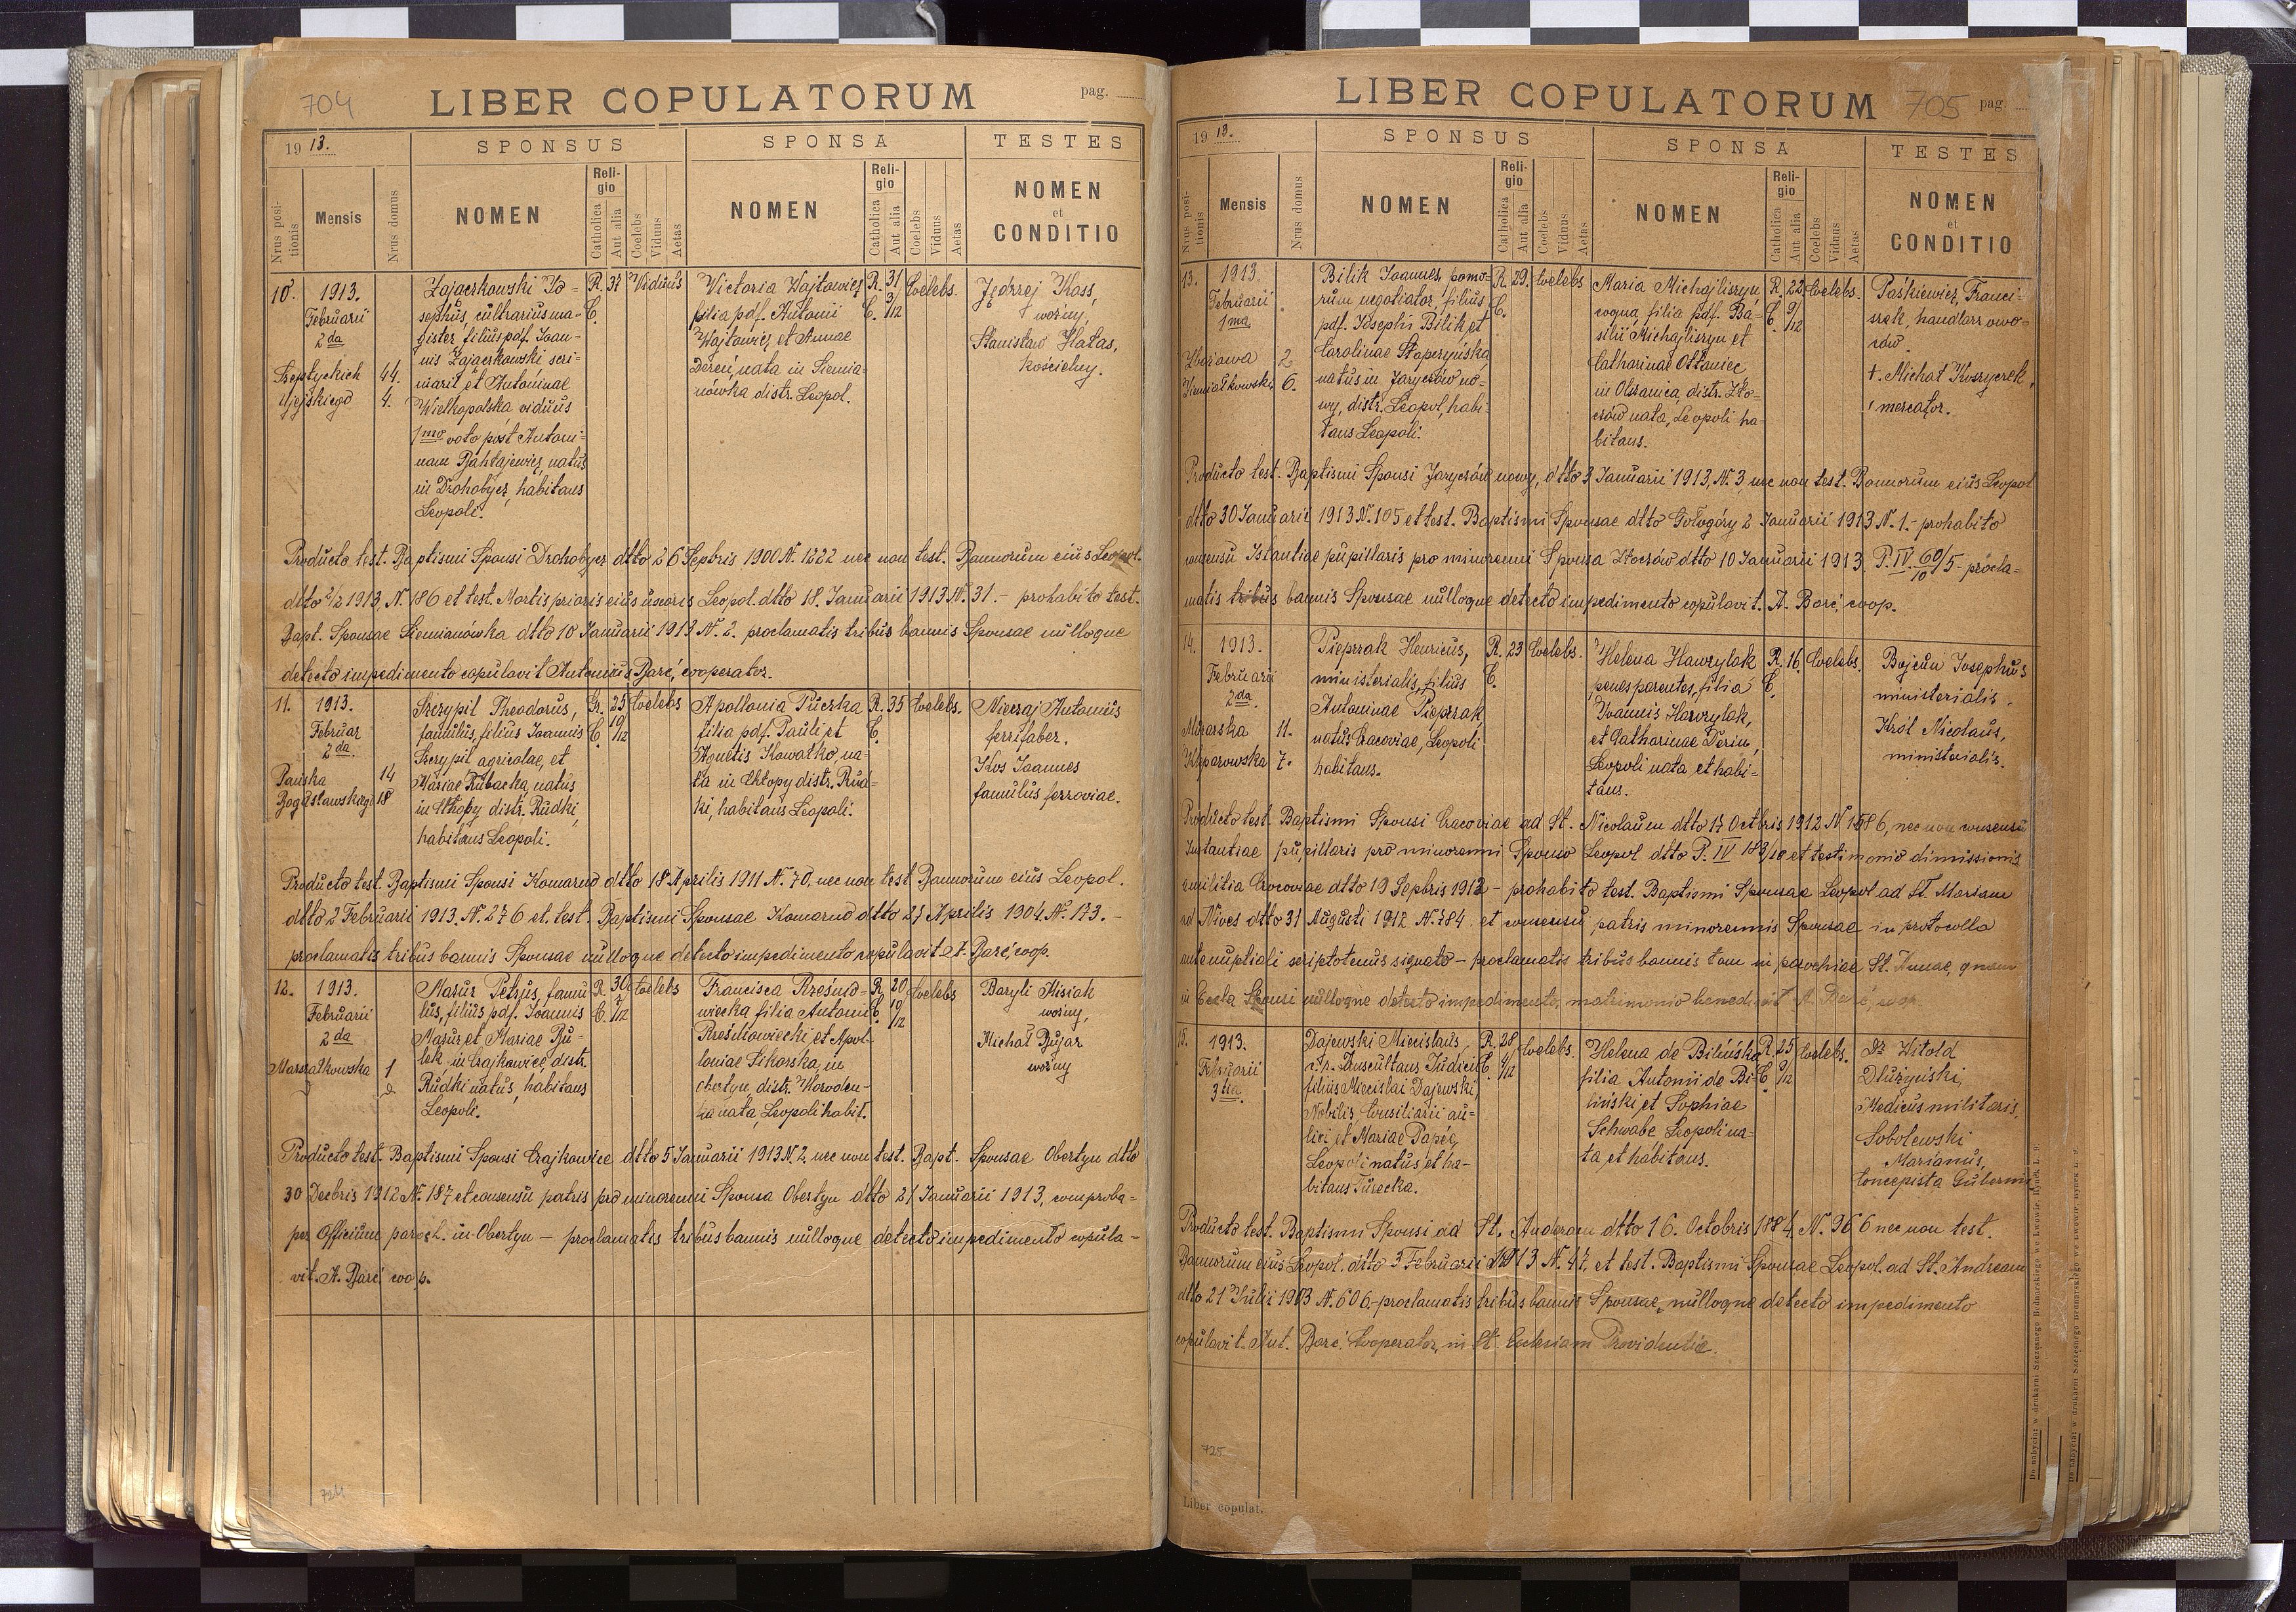 704
LIBER COPULATORUM
pag.
1913.
SPONSUS
SPONSA
TESTES
Nrus positionis
Mensis
Nrus domus
NOMEN
Religio
Catholica
Aut alia
Coelebs
Viduus
Aetas
NOMEN
Religio
Catholica
Aut alia
Coelebs
Viduus
Aetas
NOMEN
et
CONDITIO
10.
1913.
Februarii
2da
Szeptyckich 44.
Ujejskiego 4.
Zajączkowski Jo-
sephus, cultrarius ma-
gister, filius pdf. Joan-
nis Zajączkowski scri-
niarii et Antoninae
Wielkopolska viduus
1mo voto post Antoni-
nam Bahtajewicz, natus
in Drohobycz, habitans
Leopoli.
R. C.
37
Viduus
Victoria Wojtowicz
filia pdf. Antonii
Wojtowicz et Annae
Dereń, nata in Siemia-
nówka distr. Leopol.
R. C.
31 3/12
Coelebs.
Jędrzej Koss,
woźny,
Stanisław Hałas,
kościelny.
Producto test. Baptismi Sponsi Drohobycz dtto 26 Septbris 1900 N. 1222 nec non test. Bannorum eius Leopol.
dtto 2/2 1913 N. 186 et test. Mortis prioris eius uxoris Leopol. dtto 18. Januarii 1913 N. 31. - prohabito test.
Bapt. Sponsae Siemianówka dtto 10 Januarii 1913 N. 2. proclamatis tribus bannis Sponsae nulloque
detecto impedimento copulavit Antonius Barć, cooperator.
11.
1913.
Februar
2da.
Pańska 14
Bogusławskiego 18
Szczypil Theodorus,
famulus, filius Joannis
Szczypil agricolae, et
Mariae Rubacka, natus
in Chłopy distr. Rudki,
habitans Leopoli.
Gr. C.
25 10/12
Coelebs
Apollonia Puczka
filia pdf. Pauli et
Agnetis Kowalko, na-
ta in Chłopy distr. Rud-
ki, habitans Leopoli.
R. C.
35
Coelebs.
Nieczaj Antonius
ferrifaber.
Kos Joannes
famulus ferroviae.
Producto test. Baptismi Sponsi Komarno dtto 18 Aprilis 1911 N. 70, nec non test. Bannorum eius Leopol.
dtto 2 Februarii 1913. N. 276 et. test. Baptismi Sponsae Komarno dtto 27 Aprilis 1904. N. 173. -
proclamatis tribus bannis Sponsae nulloque detecto impedimento copulavit A. Barć, coop.
12.
1913.
Februarii
2da
Marszałkowska 1
Mazur Petrus, famu-
lus, filius pdf. Joannis
Mazur et Mariae Bu-
lak, in Czajkowice, distr.
Rudki natus, habitans
Leopoli.
R. C.
30 7/12
Coelebs
Francisca Brześnio-
wiecka filia Antonii
Brześniowiecki, et Apol-
loniae Sikorska, in
Obertyn, distr. Horoden-
ka nata, Leopoli habit.
R. C.
20 10/12
Coelebs
Baryli Misiak
woźny,
Michał Bujar
woźny
Producto test. Baptismi Sponsi Czajkowice dtto 5 Januarii 1913 N. 2, nec non test. Bapt. Sponsae Obertyn dtto
30 Decbris 1912 N. 187 et consensu patris pro minorenni Sponsa Obertyn dtto 21 Januarii 1913, comproba-
per Officium paroch. in Obertyn - proclamatis tribus bannis nulloque detecto impedimento copula-
vit. A. Barć coop.
724
LIBER COPULATORUM
705
pag.
1913.
SPONSUS
SPONSA
TESTES
Nrus positionis
Mensis
Nrus domus
NOMEN
Religio
Catholica
Aut alia
Coelebs
Viduus
Aetas
NOMEN
Religio
Catholica
Aut alia
Coelebs
Viduus
Aetas
NOMEN
et
CONDITIO
13.
1913.
Februarii
1ma
2
6.
Bilik Joannes, pomo-
rum negotiator, filius
pdf. Josephi Bilik et
Carolinae Stopczyńska,
natus in Jaryczów no-
wy, distr. Leopol, habi-
tans Leopoli.
R. C.
29.
Coelebs
Maria Michajliszyn
coqua, filia pdf. Ba-
silii Michajliszyn et
Catharinae Ottawiec
in Olszanica, distr. Zło-
czów nata, Leopoli ha-
bitans.
R. C.
22 9/12
Coelebs.
Paśkiewicz, Franci-
szek, handlarz owo-
ców
+. Michał Koszyczek,
mercator.
Producto test. Baptismi Sponsi Jaryczów nowy, dtto 3 Januarii 1913, N. 3, nec non test. Bannorum eius Leopol
dtto 30 Januarii 1913 N. 105 et test. Baptismi Sponsae dtto Gołogóry 2 Januarii 1913 N. 1. - prohabito
consensu Istantiae pupillaris pro minorenni Sponsa Złoczów dtto 10 Januarii 1913. P. IV. 60/10 /5 - procla-
matis tribus bannis Sponsae nulloque detecto impedimento copulavit. A. Barć, coop.
14.
1913.
Februarii
2da.
11.
7.
Pieprzak Henricus,
ministerialis, filius
Antoninae Pieprzak,
natus Cracoviae, Leopoli
habitans.
R. C.
23
Coelebs.
Helena Hawrylak
penes parentes, filia
Joannis Hawrylak,
et Catharinae Derin,
Leopoli nata, et habi-
tans.
R. C.
16.
Coelebs.
Bojcun Josephus
ministerialis.
Król Nicolaus,
ministerialis.
Producto test. Baptismi Sponsi Cracoviae ad St. Nicolaum dtto 17 Octbris 1912 N 1586, nec non consensu
Instantiae pupillaris pro minorenni Sponso Leopol dtto P. IV 183/10 et testimonio dimissionis
e militia Cracoviae dtto 19 Septbris 1912 - prohabito test. Baptismi Sponsae Leopol ad St. Mariam
ad Nives dtto 31 Augusti 1912 N. 784. et consensu patris minorennis Sponsae in protocollo
antenuptiali scriptotenus signato - proclamatis tribus bannis tam in parochiae St. Annae, quam
in Sponsi nulloque detecto impedimento, matrimonio benedixit A. Barć, coop.
15.
1913.
Februarii
3tia.
Dajewski Miecislaus,
Auscultans Judicii
filius Miecislai Dajewski,
Nobilis, Consiliarii au-
lici et Mariae Papéc,
Leopoli natus et ha-
bitans Turecka.
R. C.
28 4/12
Coelebs.
Helena de Bilińska
filia Antonii de Bi-
liński, et Sophiae
Schwabe Leopoli na-
ta et habitans.
R. C.
25
Coelebs.
Dr Witold
Dłużyński,
Medicus militaris,
Sobolewski
Marianus,
Concepista Gubernii
Producto test. Baptismi Sponsi ad St. Andream dtto 16. Octobris 1884. N. 966 nec non test.
Bannorum eius Leopol. dtto 3 Februarii 1913 N. 47, et test. Baptismi Sponsae Leopol. ad St. Andream
dtto 21 Julii 1903 N. 606. - proclamatis tribus bannis Sponsae, nulloque detecto impedimento
copulavit Ant. Barć. Cooperator, in St. Ecclesiam Providentiae.
725
Liber copulat.
Do nabycia: w drukarni Szczęsnego Bednarskiego we Lwowie, Rynek L. 9
Do nabycia: w drukarni Szczęsnego Bednarskiego we Lwowie, Rynek L. 9.